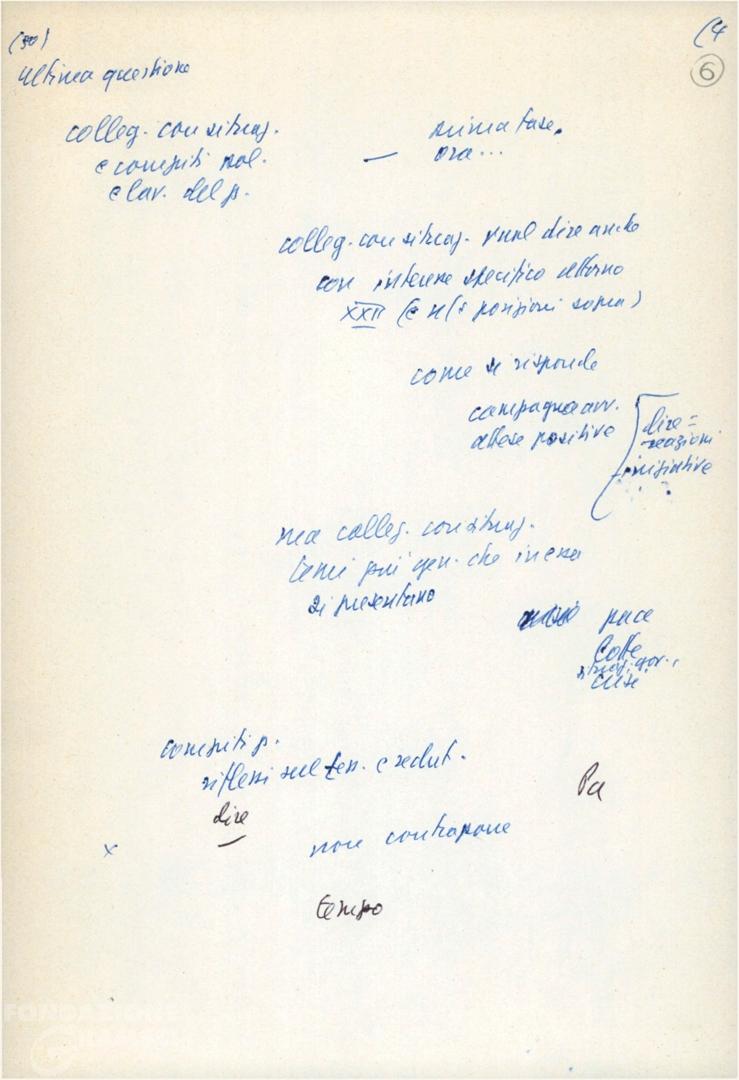 (30)
(4
6
ultima questione
colleg. con situaz.
e compiti pol.
e lav. del p.
prima fase.
— ora...
colleg. con situaz. vuol dire anche
con interesse specifico attorno
XXII (e n/s posizioni sopra)
come si risponde
campagna avv.
attese positive
dire =
reazioni
iniziative
ma colleg. con situaz.
temi più gen. che in essa
si presentano
pace
lotte
situaz. gov.,
crisi
compiti p.
riflessi sul tess. e redut.
dire
Pa
x non contrapone
tempo
FONDAZIONE
GRAMSCI